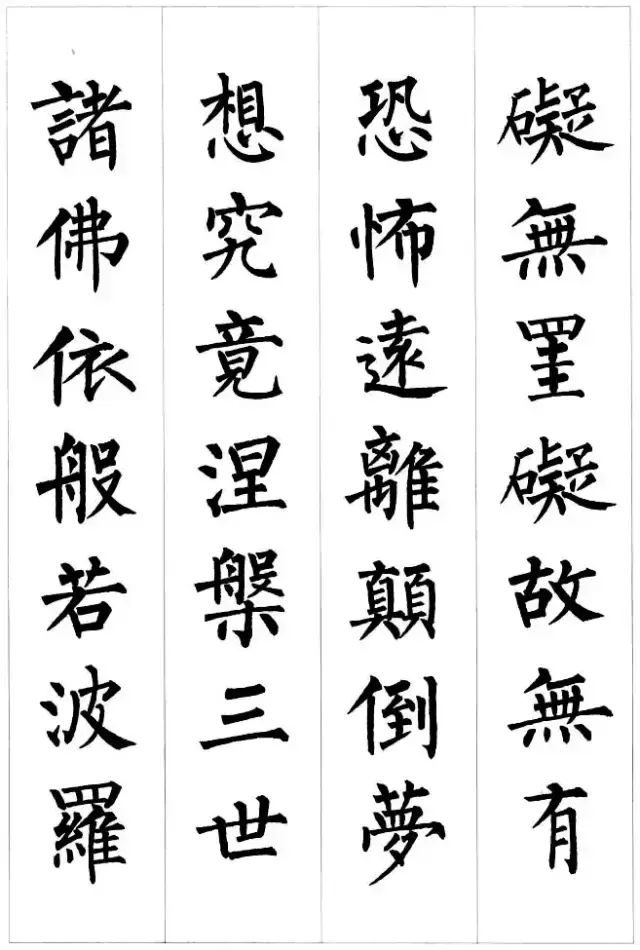 礙無罣礙故無有
恐怖遠離顛倒夢
想究竟涅槃三世
諸佛依般若波羅